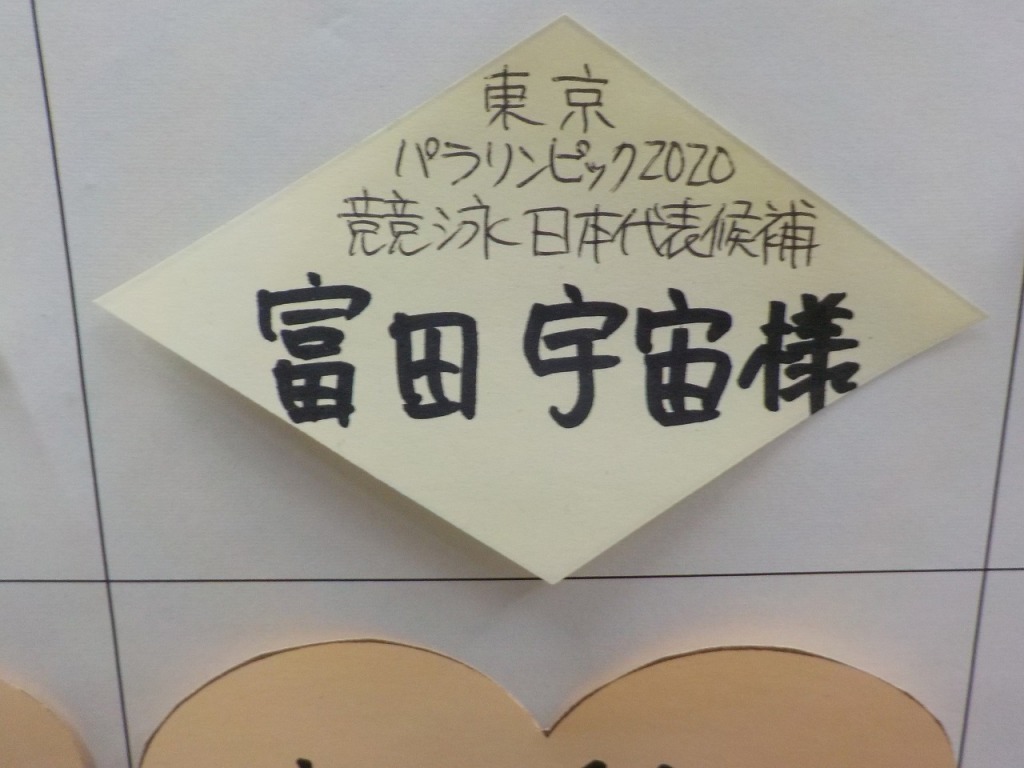 東京
パラリンピック2020
競泳日本代表候補
富田宇宙様